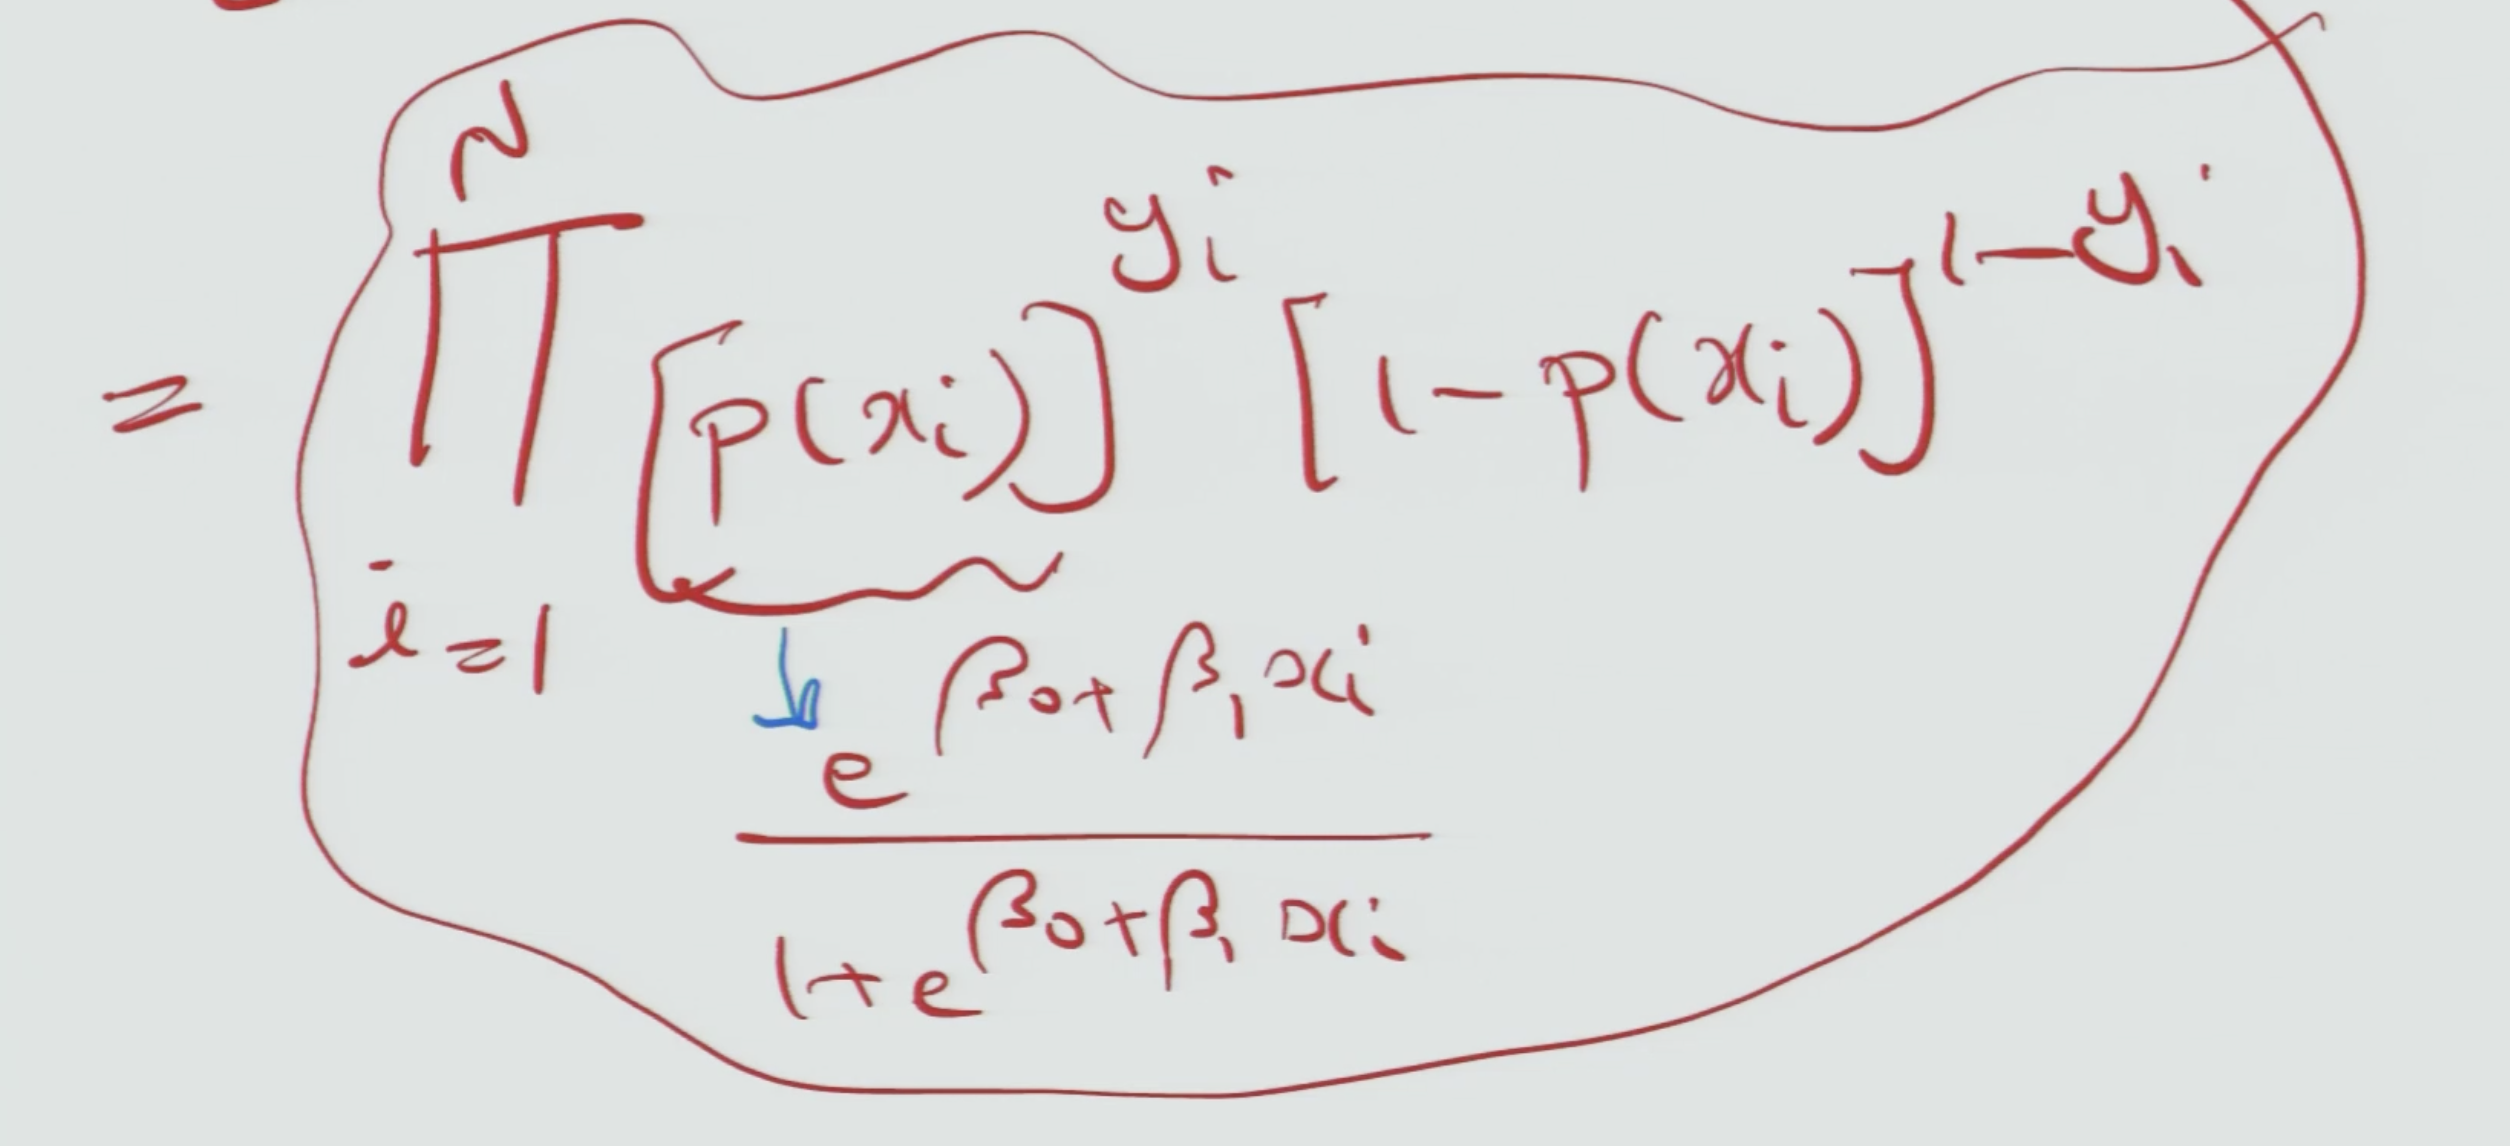 = ∏_{i=1}^{N} [p(x_i)]^{y_i} [1-p(x_i)]^{1-y_i}
↓
e^{β_0+β_1 x_i}
1+e^{β_0+β_1 x_i}